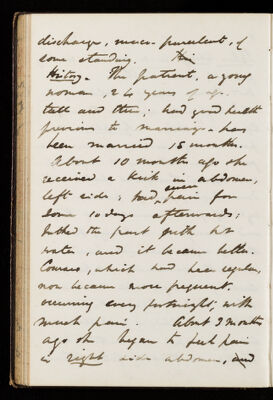 discharge, muco-purulent, of
some standing.
History. The patient, a young
woman, 24 years of age,
tall and thin; had good health
previous to marriage. has
been married 15 months.
About 10 months ago she
received a kick in abdomen,
left side; had pain for
some 10 days afterwards;
bathed the part with hot
water, and it became better.
Courses, which had been regular,
now became more frequent,
occurring every fortnight, with
much pain. About 3 months
ago she began to feel pain
in right side abdomen, and